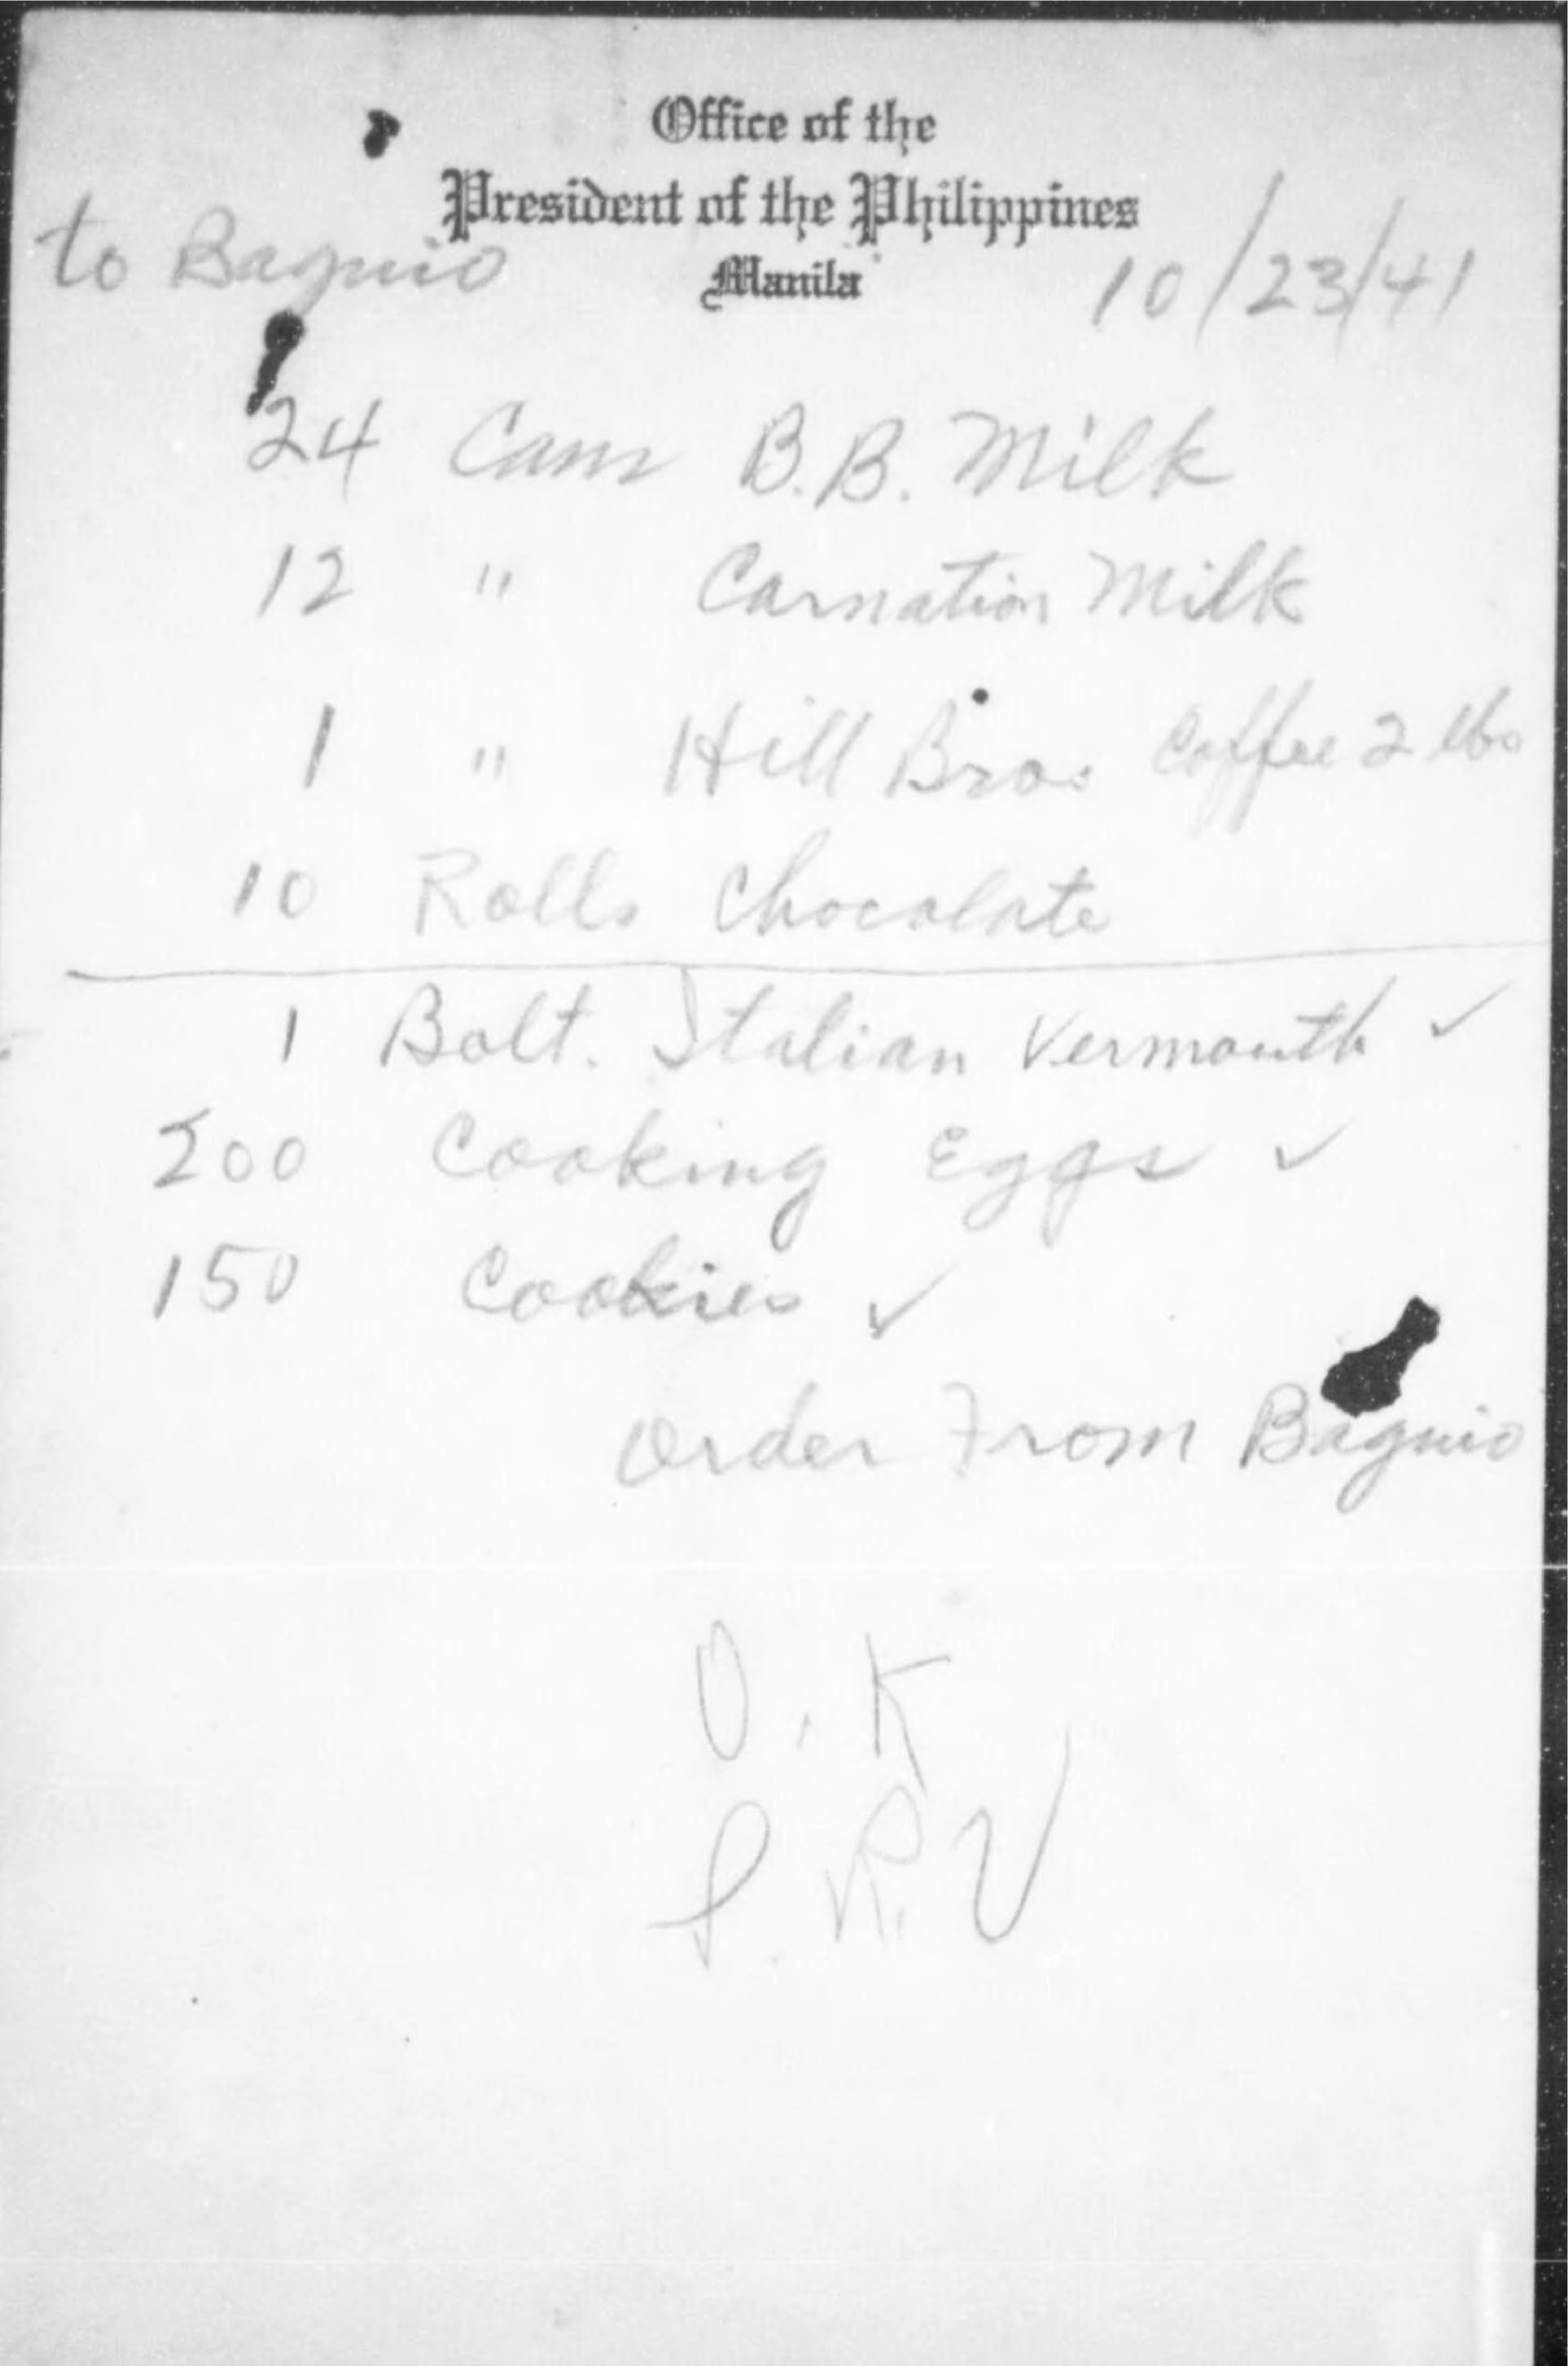 Office of the
President of the Philippines
Manila
to Baguio 10/23/41
24 Cans B.B. Milk
12 " Carnation Milk
1 " Hill Bros Coffee 2 lbs
10 Rolls Chocolate
1 Bolt. Italian Vermouth ✓
200 Cooking Eggs ✓
150 Cookies ✓
Order From Baguio
O.K